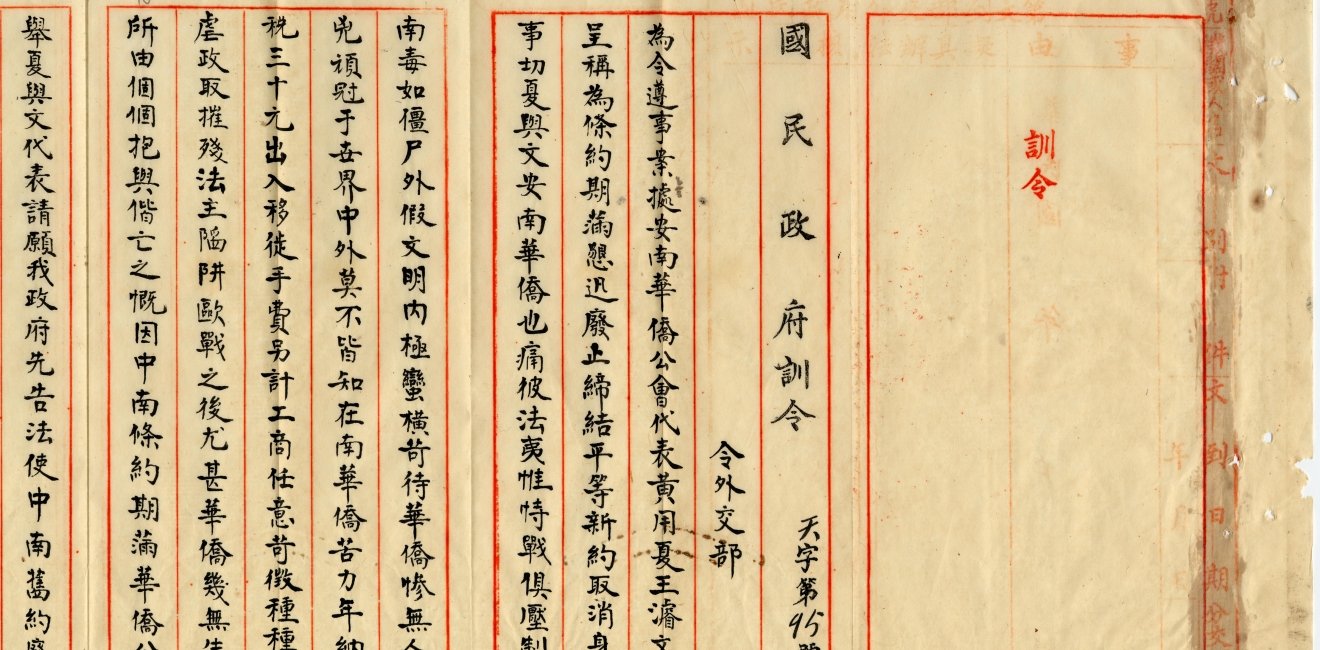 訓令
國民政府訓令
天字第95號
令外交部
為令遵事案據安南華僑公會代表黃用夏王濬文
呈稱為條約期滿懇迅廢止締結平等新約取消身
事切夏與文安南華僑也痛彼法夷惟恃戰俱壓制
南毒如僵尸外假文明內極蠻橫苛待華僑慘無人
兇頑冠于世界中外莫不皆知在南華僑苦力年納
稅三十元出入移徒手費另計工商任意苛徵種種
虐政取摧殘法主陷阱歐戰之後尤甚華僑幾無生
所由個個抱與偕亡之慨因中南條約期滿華僑公
舉夏與文代表請願我政府先告法使中南舊約廢